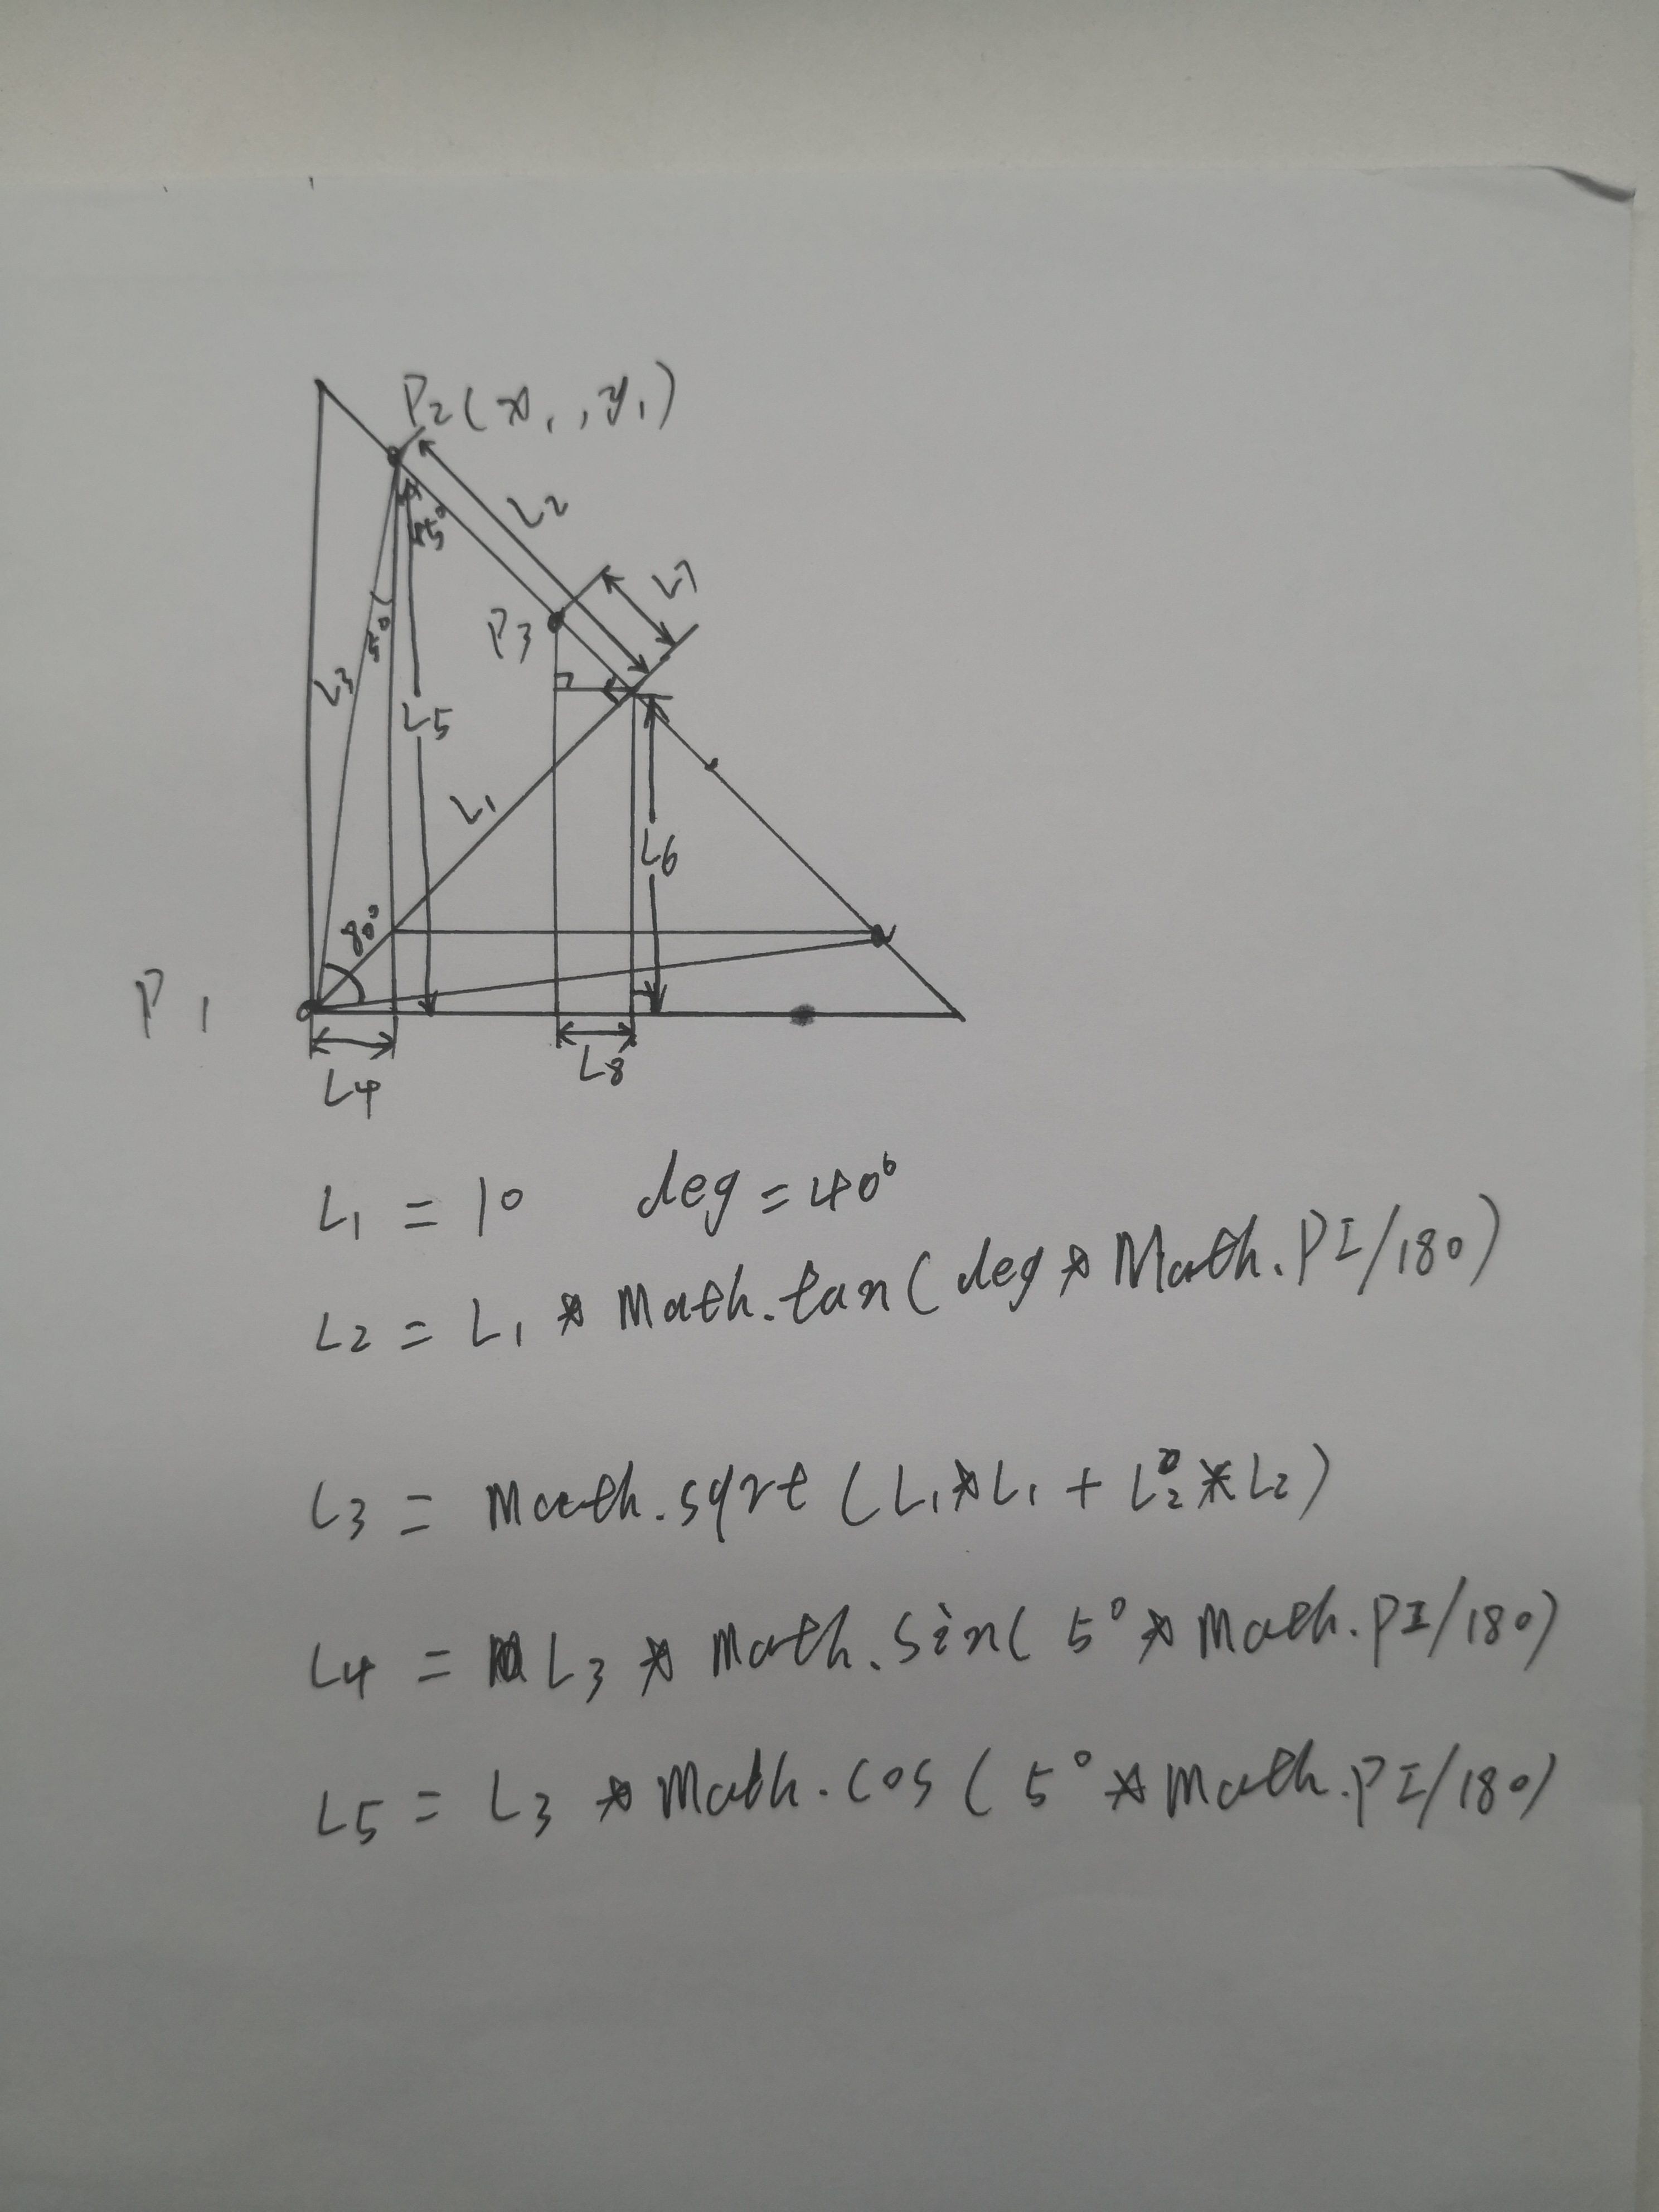 P2(x1,y1)
L2
45°
L7
P3
5°
L3
L5
L1
L6
80°
P1
L8
L4
L1 = 10 deg = 40°
L2 = L1 * Math.tan(deg * Math.PI/180)
L3 = Math.sqrt(L1*L1 + L2*L2)
L4 = L3 * Math.sin(5° * Math.PI/180)
L5 = L3 * Math.cos(5° * Math.PI/180)